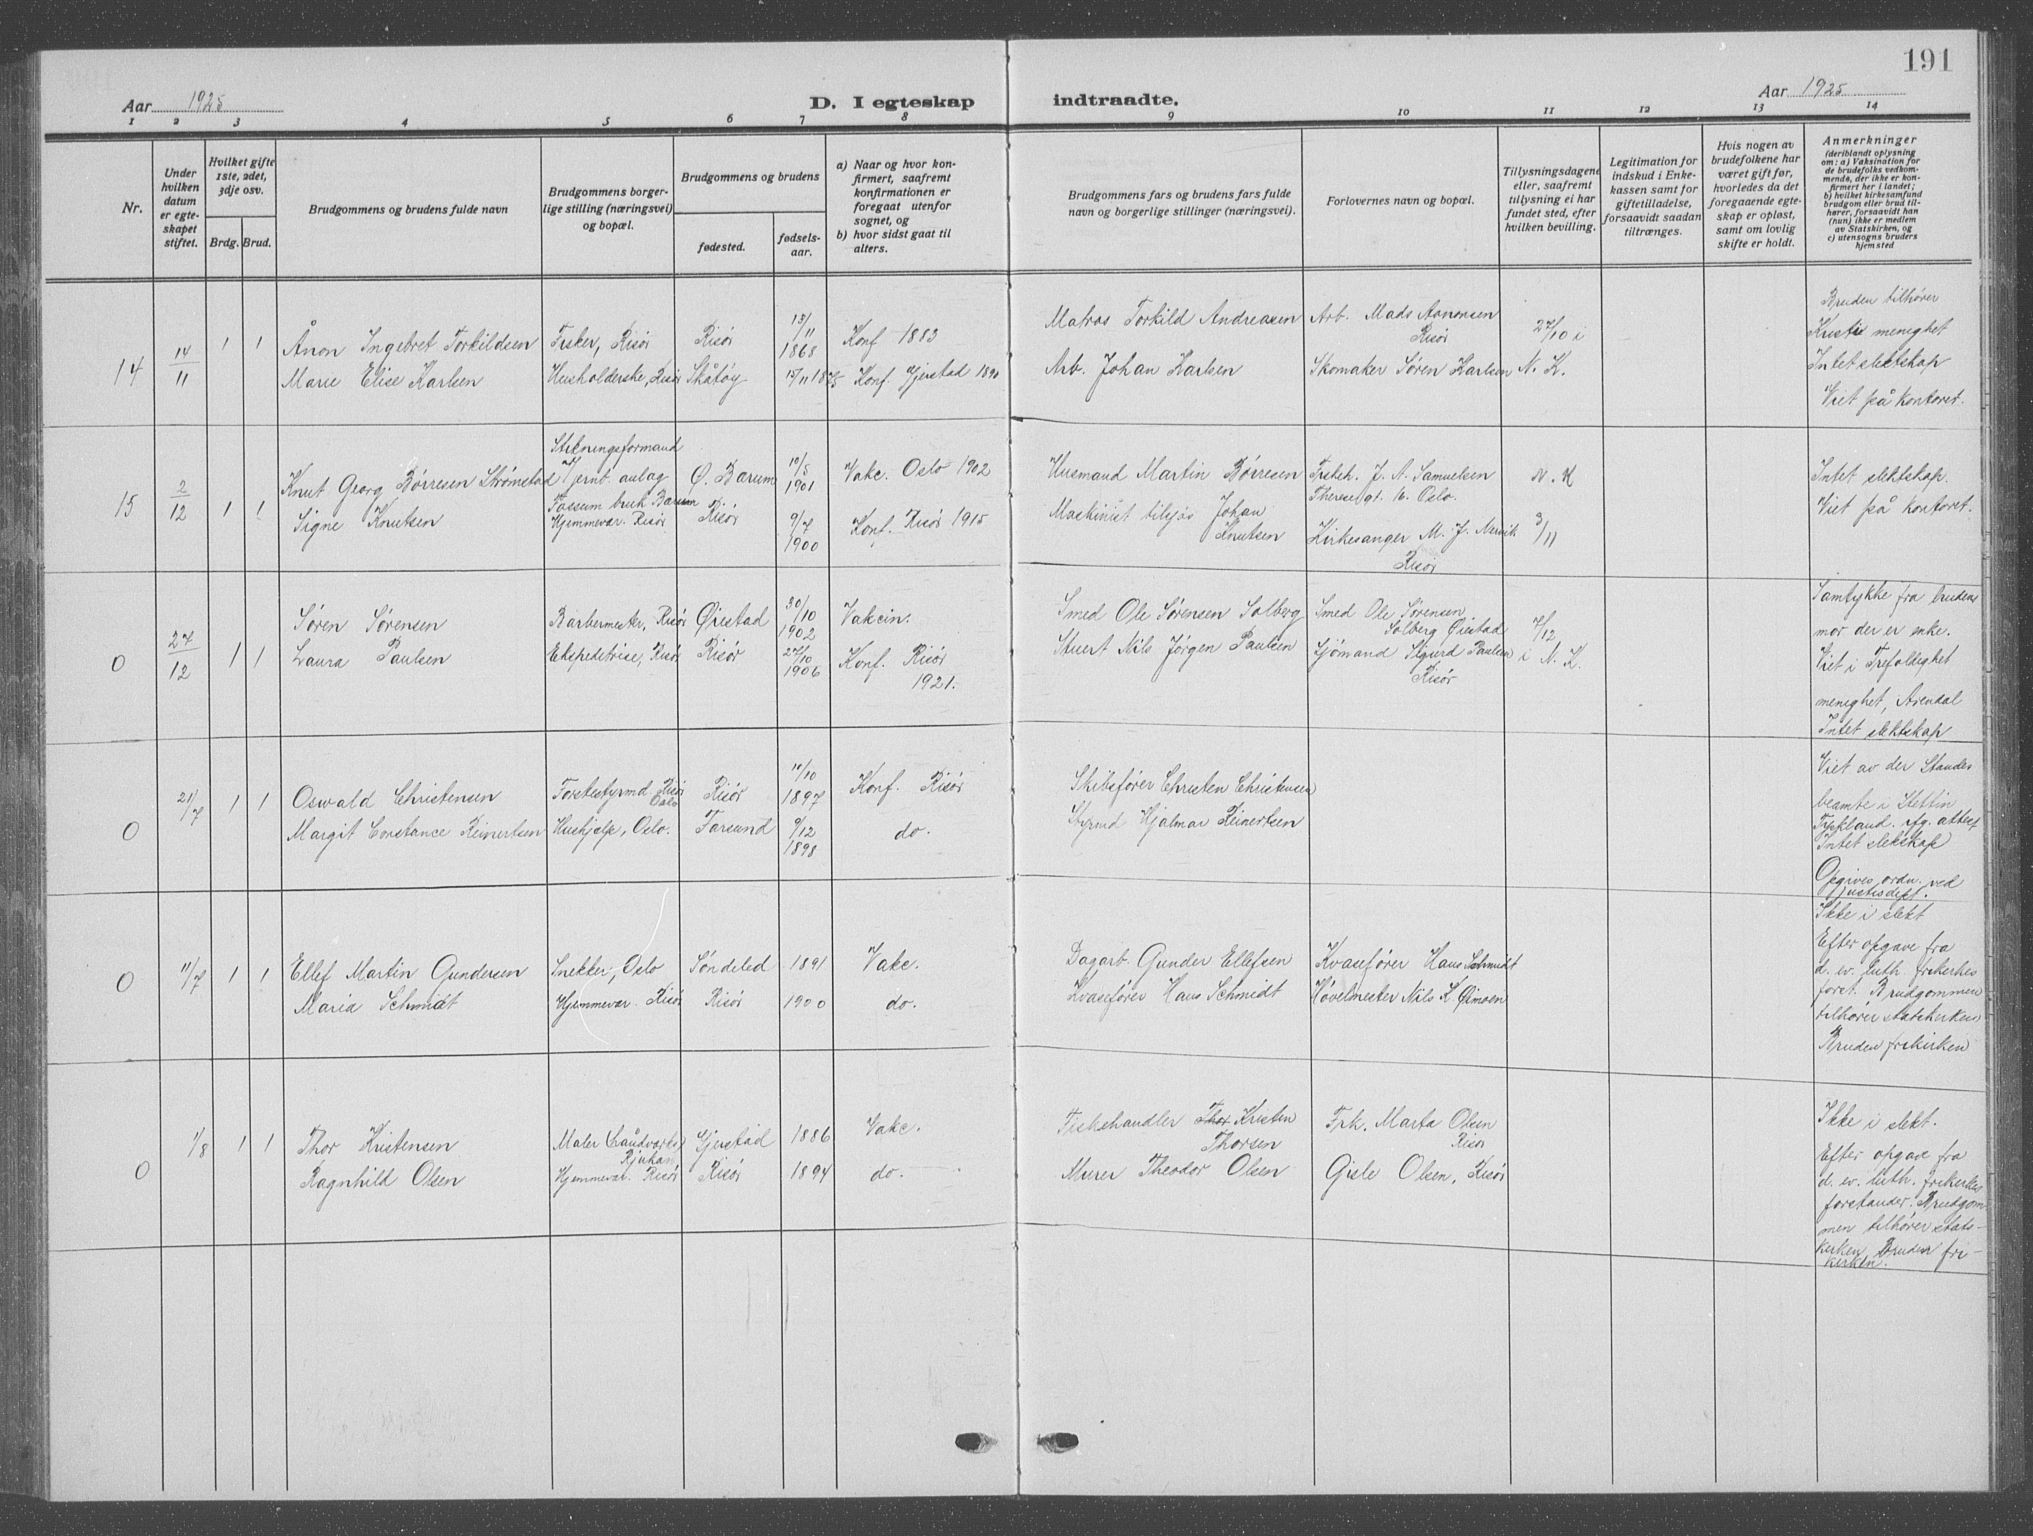 191
Aar 1925
D. I egteskap indtraadte.
Aar 1925
1 2 3 4 5 6 7 8 9 10 11 12 13 14
Nr.
Under hvilken datum er egteskapet stiftet.
Hvilket gifte 1ste, 2det, 3dje osv.
Brdg. Brud.
Brudgommens og brudens fulde navn
Brudgommens borgerlige stilling (næringsvei) og bopæl.
Brudgommens og brudens
fødested.
fødselsaar.
a) Naar og hvor konfirmert, saafremt konfirmationen er foregaat utenfor sognet, og
b) hvor sidst gaat til alters.
Brudgommens fars og brudens fars fulde navn og borgerlige stillinger (næringsvei).
Forlovernes navn og bopæl.
Tillysningsdagene eller, saafremt tillysning ei har fundet sted, efter hvilken bevilling.
Legitimation for indskud i Enkekassen samt for giftetilladelse, forsaavidt saadan tiltrænges.
Hvis nogen av brudefolkene har været gift før, hvorledes da det foregaaende egteskap er opløst, samt om lovlig skifte er holdt.
Anmerkninger (deriblandt oplysning om: a) Vaksination for de brudefolks vedkommende, der ikke er konfirmert her i landet; b) hvilket kirkesamfund brudgom eller brud tilhører, forsaavidt han (hun) ikke er medlem av Statskirken, og c) utensogns bruders hjemsted
14 14/11 1 1
Ånon Ingebret Torkildsen Fisker, Risør Risør 13/11 1868 Konf 1883
Marie Elise Karlsen Husholderske, Risør Skåtøy 15/11 1875 Konf. Gjerstad 1890
Matros Torkild Andreasen Arb. Mads Aanonsen Risør 27/10 i
Arb. Johan Karlsen Skomaker Søren Karlsen N. K.
Bruden tilhører
Kristi menighet
Intet slektskap
Viet på kontoret.
15 2/12 1 1
Knut Georg Børresen Strømstad Stikningsformand v. Jernb. anlag Fossum bruk Bærum Ø. Bærum 10/5 1901 Vakc. Oslo 1902
Signe Knutsen Hjemmevær. Risør Risør 9/7 1900 Konf. Risør 1915
Husmand Martin Børresen Frstek. J. A. Samuelsen Theresegt. 16. Oslo. N. K
Maskinist tilsjøs Johan Knutsen Kirkesanger M. J. Nervik. Risør 3/11
Intet slektskap.
Viet på kontoret.
0 27/12 1 1
Søren Sørensen Barbermester, Risør Øiestad 30/10 1902 Vakcin.
Laura Paulsen Ekspeditrise, Risør Risør 27/10 1906 Konf. Risør 1921.
Smed Ole Sørensen Solberg Smed Ole Sørensen Solberg Øiestad 7/12
Stuert Nils Jørgen Paulsen Sjømand Sigurd Paulsen Risør i N. K.
Samtykke fra brudens
mor der er enke.
Viet i Trefoldighet
menighet, Arendal
Intet slektskap
0 21/7 1 1
Oswald Christensen Førstestyrmd Risør Oslo Risør 10/10 1897 Konf. Risør
Margit Constance Reinertsen Hushjelp, Oslo. Farsund 9/12 1898 do.
Skibsfører Christen Christensen
Styrmd Hjalmar Reinertsen
Viet av der Standes
beamte i Stettin
Tyskland. ifg. attest
Intet slekskap
Opgives ordn. ved
justisdept.
0 11/7 1 1
Ellef Martin Gundersen Snekker, Oslo Søndeled 1891 Vakc.
Maria Schmidt Hjemmevær. Risør Risør 1900 do.
Dagarb. Gunder Ellefsen Kvasefører Hans Schmidt
Kvasefører Hans Schmidt Høvelmester Nils K. Simoen
Ikke i slekt
Efter opgave fra
d. ev. luth. frikirkes
forst. Brudgommen
tilhører statskirken
Bruden frikirken
0 1/8 1 1
Thor Kristensen Maler Rjukan Gjerstad 1886 Vakc.
Ragnhild Olsen Hjemmevær. Risør Risør 1894 do.
Fiskehandler Thor Kristen Thorsen Frk. Marta Olsen Risør
Murer Theodor Olsen Gisle Olsen, Risør
Ikke i slekt.
Efter opgave fra
d. ev. luth. frikirkes
forstander. Brudgom-
men tilhører stats-
kirken Bruden fri-
kirken.